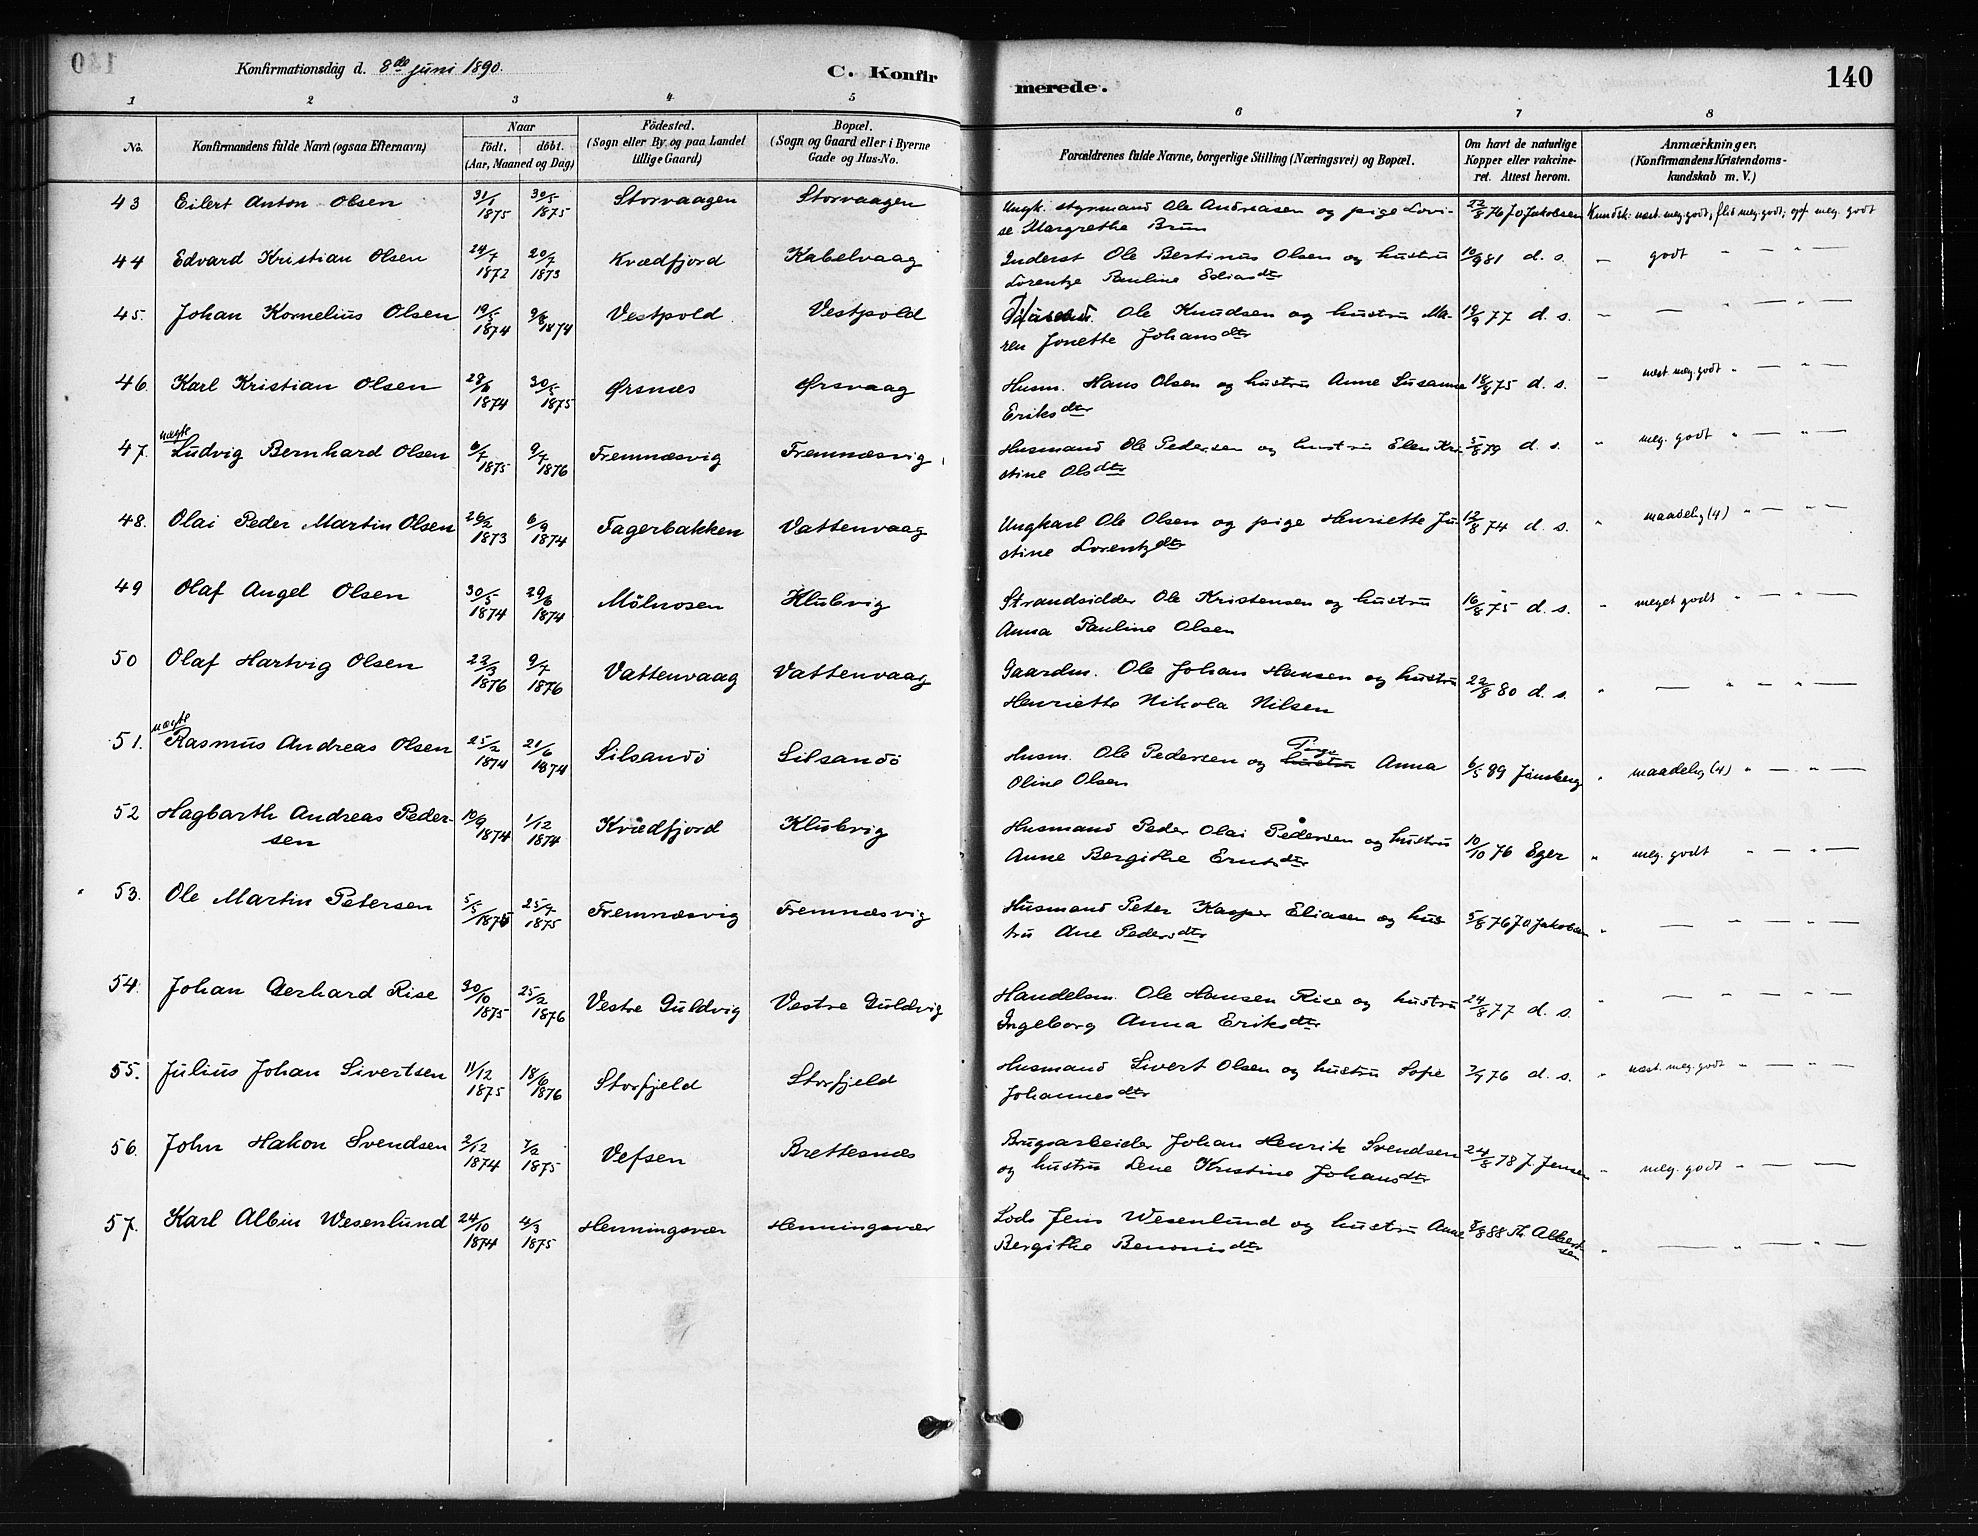 Konfirmationsdag d. 8de juni 1890.
C. Konfirmerede.
140
1 2 3 4 5 6 7 8
No.
Konfirmandens fulde Navn (ogsaa Efternavn)
Naar
födt. döbt.
(Aar, Maaned og Dag)
Födested.
(Sogn eller By, og paa Landet
tillige Gaard)
Bopæl.
(Sogn og Gaard eller i Byerne
Gade og Hus-No.
Forældrenes fulde Navne, borgerlige Stilling (Næringsvei) og Bopæl.
Om havt de naturlige
Kopper eller vakcine-
ret. Attest herom.
Anmærkninger.
(Konfirmandens Kristendoms-
kundskab m. V.)
43 Eilert Anton Olsen 31/1 1875 30/5 1875 Storvaagen Storvaagen Ungk. styrmand Ole Andreasen og pige Lovi- 22/8 76 J O Jakobsen Kundsk: næst. meg. godt, flid meg. godt; opf. meg. godt
se Margrethe Brun
44 Edvard Kristian Olsen 24/7 1872 20/7 1873 Kvædfjord Kabelvaag Inderst Ole Bertinus Olsen og hustru 10/9 81 d. s. — godt " — " —
Lorentze Pauline Eliasdtr
45. Johan Kornelius Olsen 19/5 1874 9/8 1874 Vestpold Vestpold Ole Knudsen og hustru Ma- 19/9 77 d. s. — — " — " —
ren Jonette Johansdtr
46. Karl Kristian Olsen 28/6 1874 30/5 1875 Ørsnæs Ørsvaag Husm. Hans Olsen og hustru Anne Susanna 18/8 75 d. s. — næst. meg. godt " — " —
Eriksdtr
47. uægte Ludvig Bernhard Olsen 6/7 1875 9/7 1876 Fremnæsvig Fremnæsvig Husmand Ole Pedersen og hustru Elen Kri- 5/8 79 d. s. " meg. godt " — " —
stine Olsdtr
48. Olai Peder Martin Olsen 26/2 1873 6/9 1874 Fagerbakken Vattenvaag Ungkarl Ole Olsen og pige Henriette Ju- 12/8 74 d. s. " maadelig (4) " — " —
stine Lorentzdtr
49 Olaf Angel Olsen 30/5 1874 29/6 1874 Mölnosen Klubvig Strandsidder Ole Kristensen og hustru 16/8 75 d. s. " meget godt " — " —
Anna Pauline Olsen
50 Olaf Hartvig Olsen 22/3 1876 9/7 1876 Vattenvaag Vattenvaag Gaardm. Ole Johan Hansen og hustru 22/8 80 d. s. " — " — " —
Henriette Nikola Nilsen
51. uægte Rasmus Andreas Olsen 25/2 1874 21/6 1874 Silsandö Silsandö Husm. Ole Pedersen og hustru Pige Anna 6/5 89 Jünsberg " maadelig (4) " — " —
Oline Olsen
52 Hagbarth Andreas Peder- 10/9 1874 1/12 1874 Kvædfjord Klubvig Husmand Peder Olai Pedersen og hustru 10/10 76 Eger " meg. godt " — " —
sen Anne Bergithe Erntsdtr
53. Ole Martin Petersen 5/5 1875 25/7 1875 Fremnæsvig Fremnæsvig Husmand Peter Kasper Eliasen og hus- 5/8 76 J O Jakobsen " — " — " —
tru Ane Pedersdtr
54. Johan Gerhard Rise 30/10 1875 25/2 1876 Vestre Guldvig Vestre Guldvig Handelsm. Ole Hansen Rise og hustru 24/8 77 d. s. " — " — " —
Ingeborg Anna Eriksdtr
55. Julius Johan Sivertsen 11/12 1875 18/6 1876 Storfjeld Storfjeld Husmand Sivert Olsen og hustru Sofie 2/9 76 d. s. " næst. meg. godt " — " —
Johannesdtr
56. John Hakon Svendsen 2/12 1874 7/2 1875 Vefsen Brettesnæs Brugsarbeider Johan Henrik Svendsen 24/8 78 J. Jensen " meg. godt " — " —
og hustru Lene Kristine Johansdtr
57. Karl Albin Wesenlund 24/10 1874 4/3 1875 Henningsvær Henningsvær Lods Jens Wesenlund og hustru Anne 8/8 88 Th. Albert- " — " — " —
Bergithe Benonisdtr sen